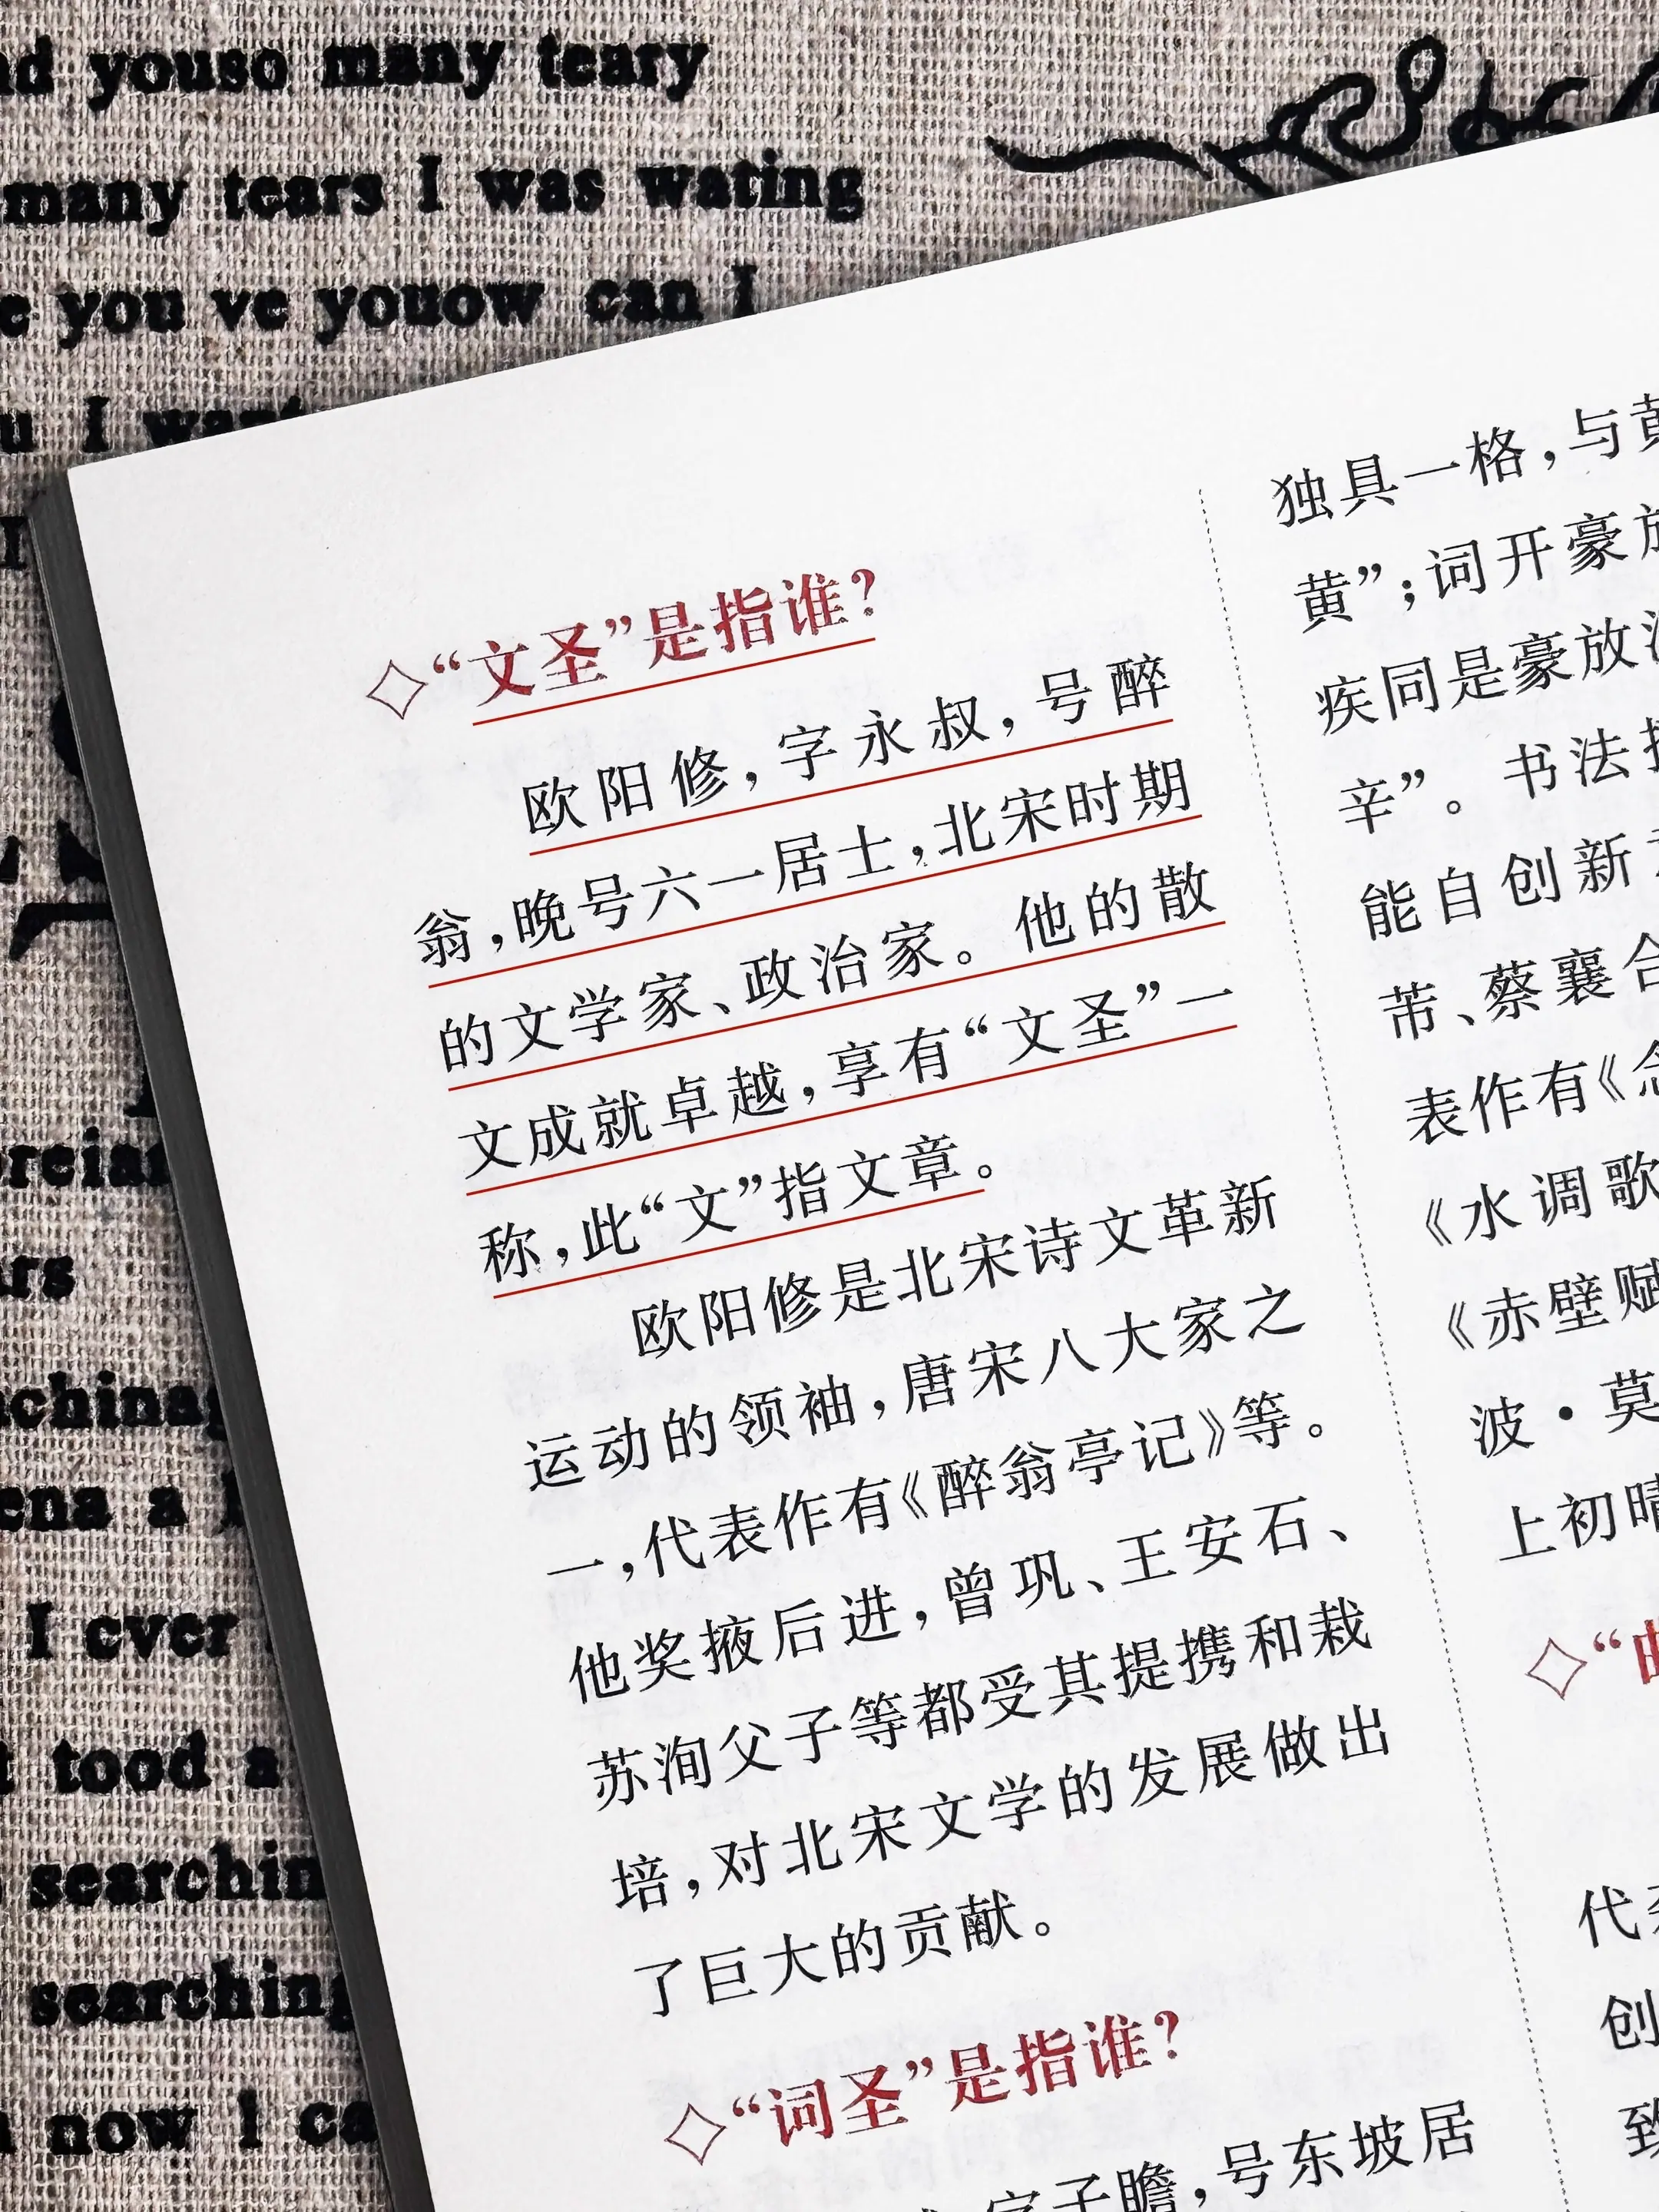 youso many teary
many tears I was wating
you ve youow can I
I want
◇“文圣”是指谁?
欧阳修,字永叔,号醉
翁,晚号六一居士,北宋时期
的文学家、政治家。他的散
文成就卓越,享有“文圣”一
称,此“文”指文章。
欧阳修是北宋诗文革新
运动的领袖,唐宋八大家之
一,代表作有《醉翁亭记》等。
他奖掖后进,曾巩、王安石、
苏洵父子等都受其提携和栽
培,对北宋文学的发展做出
了巨大的贡献。
◇“词圣”是指谁?
字子瞻,号东坡居
独具一格,与黄
黄”;词开豪放
疾同是豪放派
辛”。书法擅
能自创新意
芾、蔡襄合
表作有《念
《水调歌
《赤壁赋
波·莫
上初晴
◇“曲
代杂
创
致
I ever
tood a
searchin
searching
now I ca